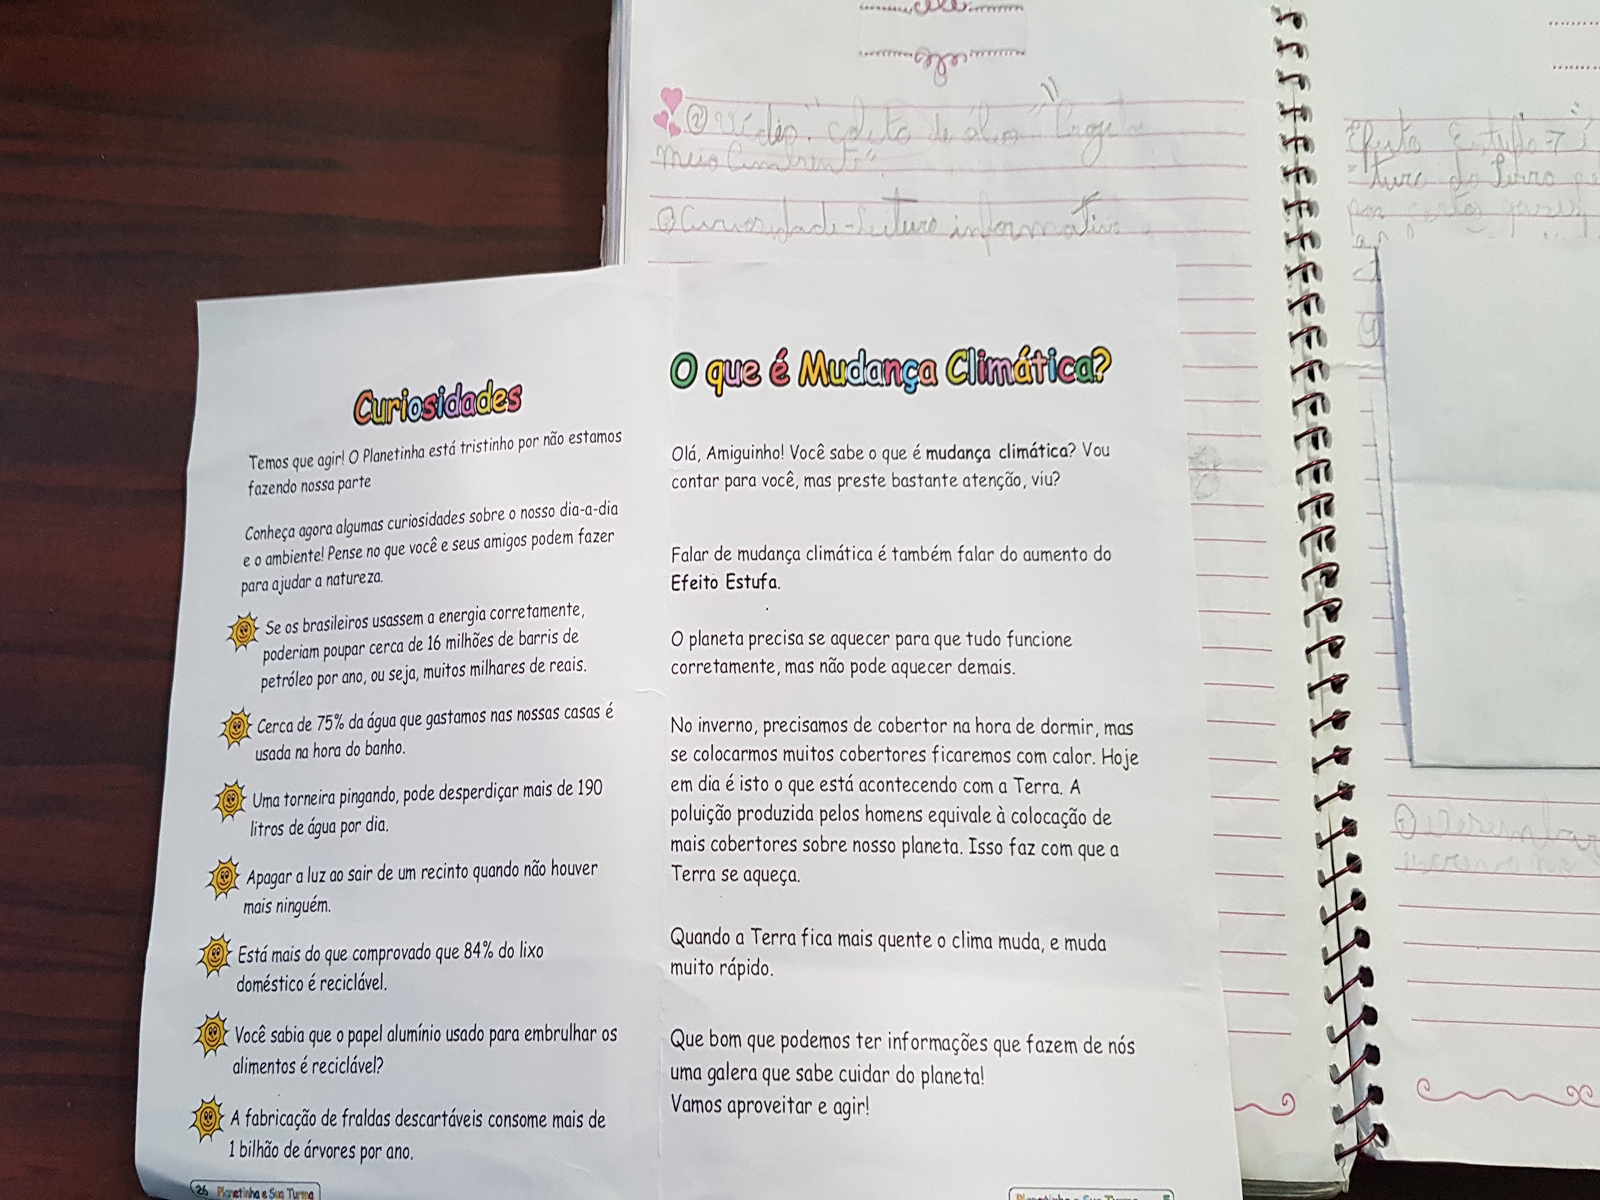 ② Vídeo: coleta de óleo "Projeto
meio ambiente"
Curiosidade - Leitura informativa
Curiosidades
Temos que agir! O Planetinha está tristinho por não estamos
fazendo nossa parte
Conheça agora algumas curiosidades sobre o nosso dia-a-dia
e o ambiente! Pense no que você e seus amigos podem fazer
para ajudar a natureza.
Se os brasileiros usassem a energia corretamente,
poderiam poupar cerca de 16 milhões de barris de
petróleo por ano, ou seja, muitos milhares de reais.
Cerca de 75% da água que gastamos nas nossas casas é
usada na hora do banho.
Uma torneira pingando, pode desperdiçar mais de 190
litros de água por dia.
Apagar a luz ao sair de um recinto quando não houver
mais ninguém.
Está mais do que comprovado que 84% do lixo
doméstico é reciclável.
Você sabia que o papel alumínio usado para embrulhar os
alimentos é reciclável?
A fabricação de fraldas descartáveis consome mais de
1 bilhão de árvores por ano.
26 Planetinha e Sua Turma
O que é Mudança Climática?
Olá, Amiguinho! Você sabe o que é mudança climática? Vou
contar para você, mas preste bastante atenção, viu?
Falar de mudança climática é também falar do aumento do
Efeito Estufa.
O planeta precisa se aquecer para que tudo funcione
corretamente, mas não pode aquecer demais.
No inverno, precisamos de cobertor na hora de dormir, mas
se colocarmos muitos cobertores ficaremos com calor. Hoje
em dia é isto o que está acontecendo com a Terra. A
poluição produzida pelos homens equivale à colocação de
mais cobertores sobre nosso planeta. Isso faz com que a
Terra se aqueça.
Quando a Terra fica mais quente o clima muda, e muda
muito rápido.
Que bom que podemos ter informações que fazem de nós
uma galera que sabe cuidar do planeta!
Vamos aproveitar e agir!
Planetinha e Sua Turma 5
Efeito Estufa → é
por certos gases